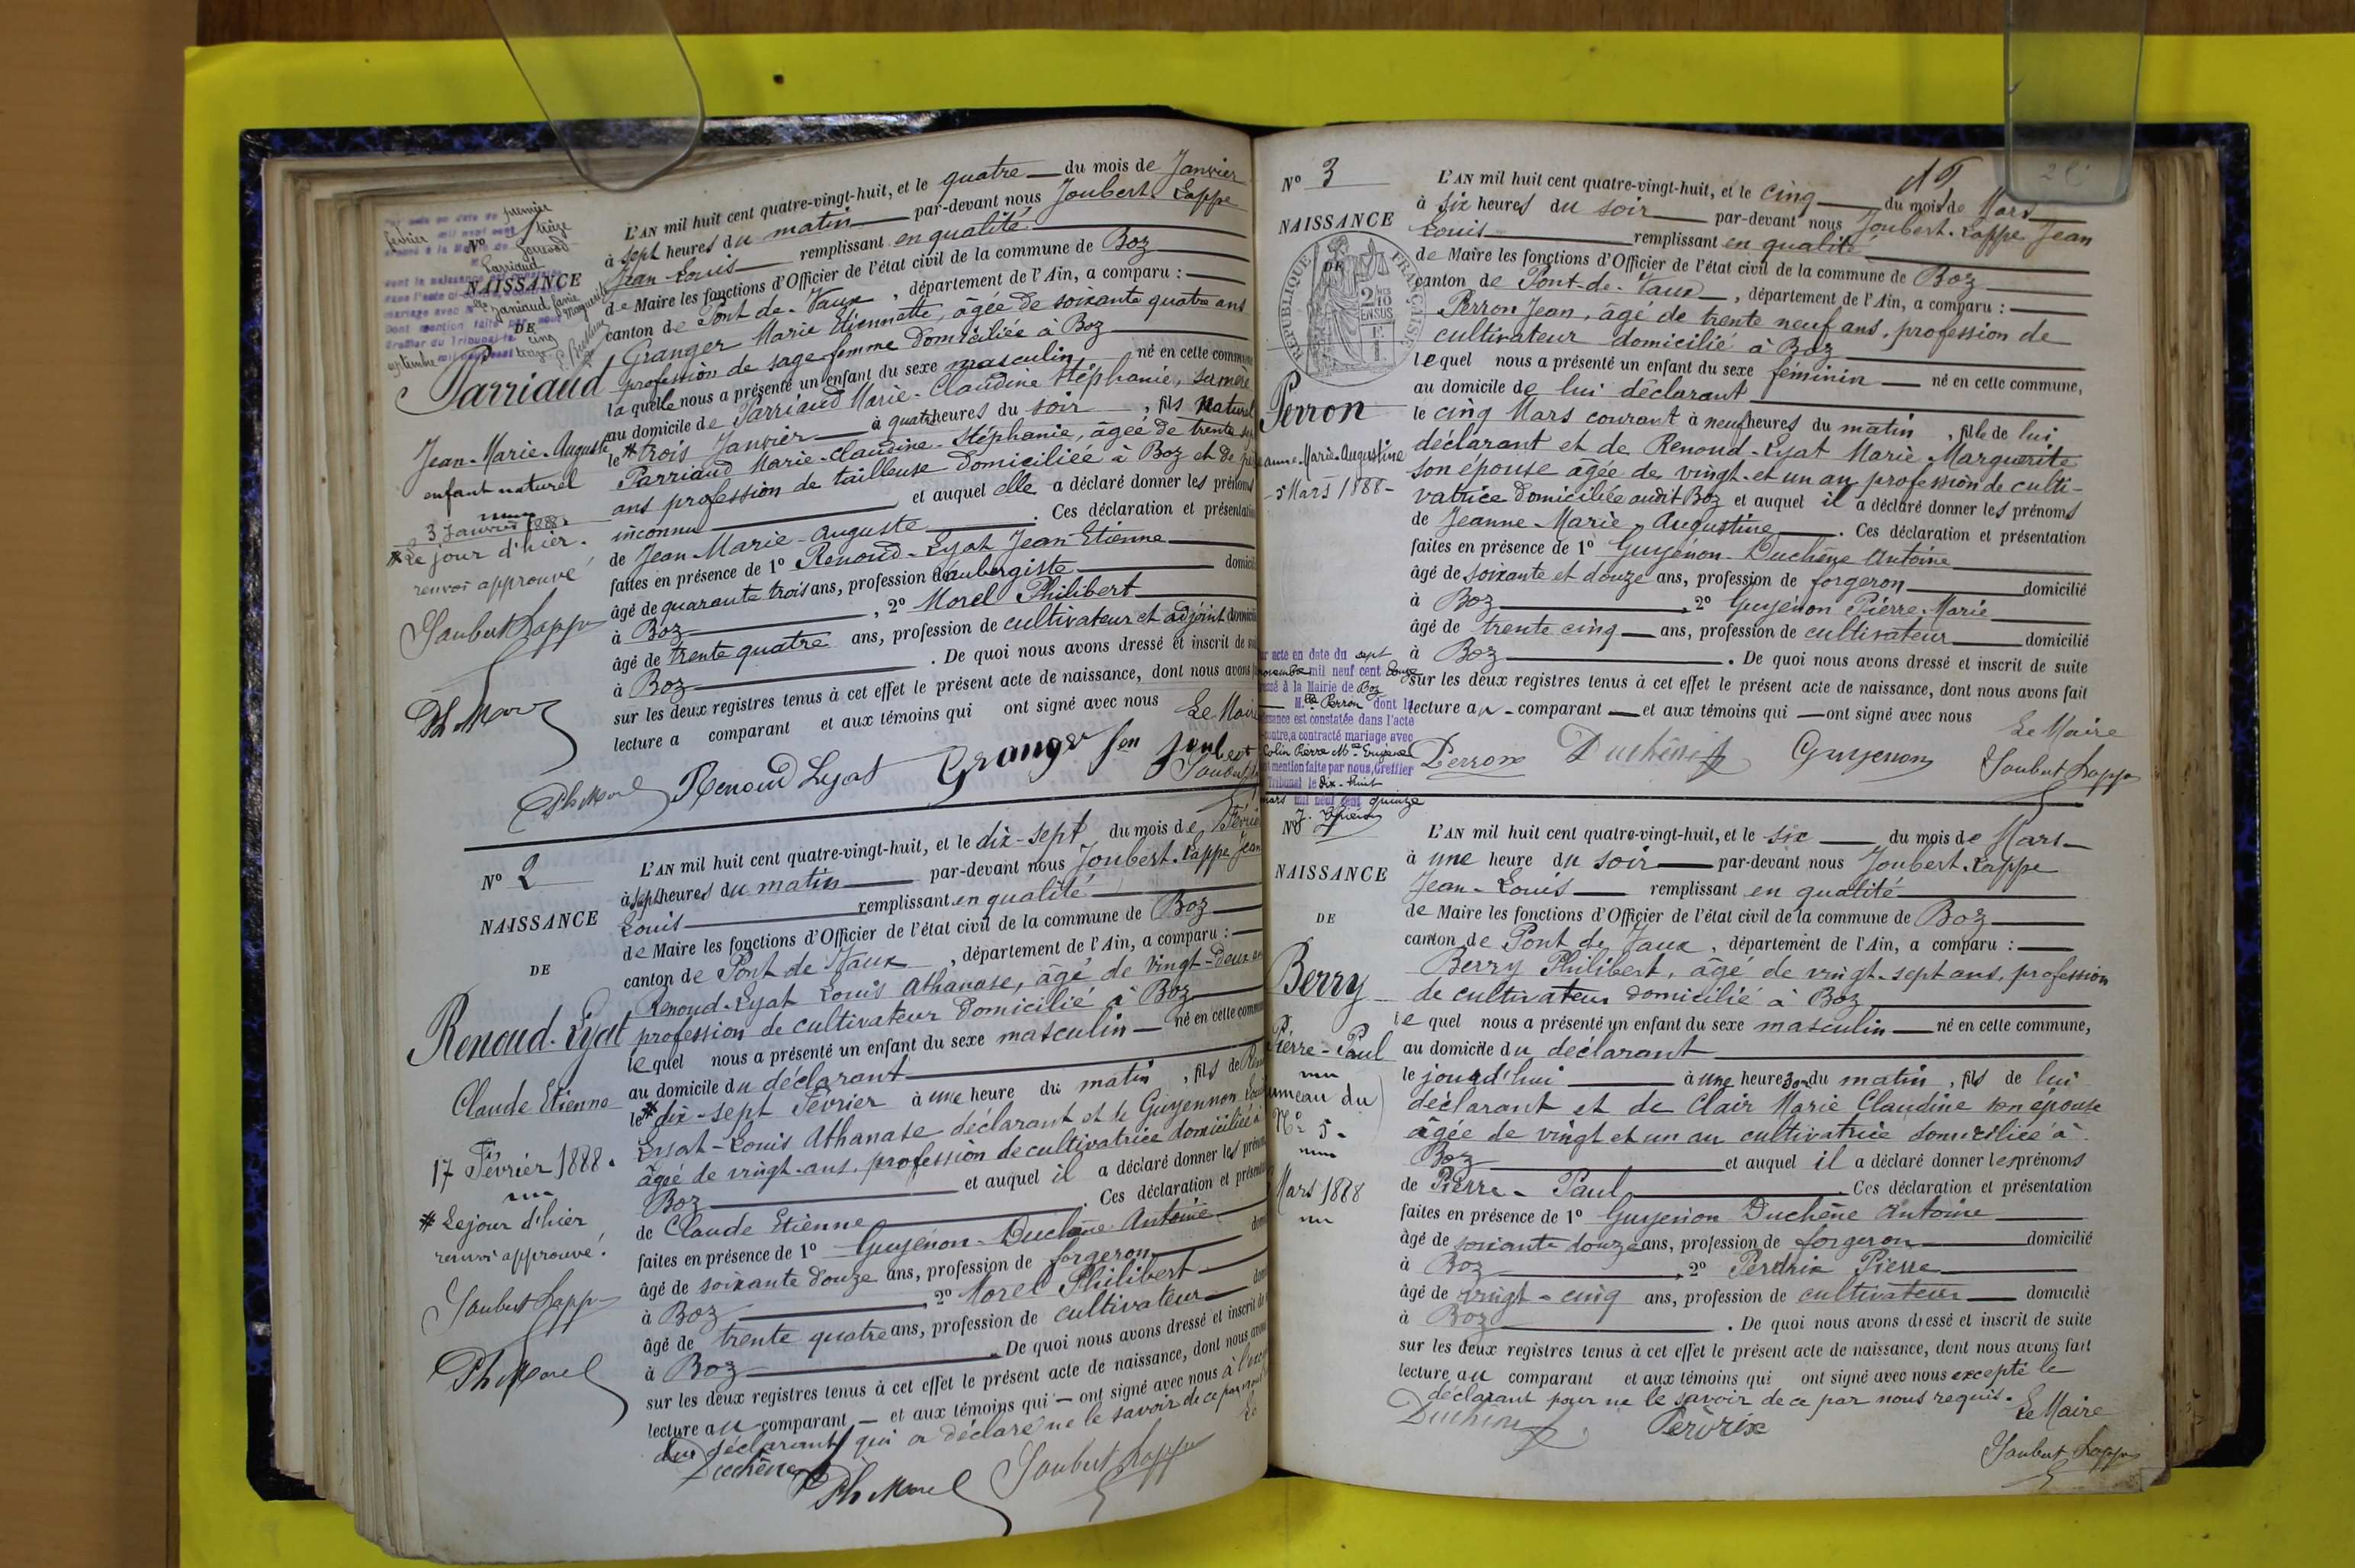 premier
février
treize
Gorrevod
Parriaud
NAISSANCE
DE
cinq
Parriaud
Jean-Marie-Auguste
enfant naturel
3 Janvier 1888.
* Le jour d'hier.
renvoi approuvé
Joubert Lappe
Ph Morel
L'AN mil huit cent quatre-vingt-huit, et le quatre du mois de Janvier
à sept heures du matin par-devant nous Joubert-Lappe
Jean Louis remplissant en qualité
de Maire les fonctions d'Officier de l'état civil de la commune de Boz
canton de Pont de-Vaux, département de l'Ain, a comparu :
Granger Marie Etiennette, âgée de soixante quatre ans
profession de sage-femme domiciliée à Boz
la quelle nous a présenté un enfant du sexe masculin, né en cette commune
au domicile de Parriaud Marie-Claudine Stéphanie, sa mère
le * trois Janvier à quatre heures du soir, fils naturel
Parriaud Marie-Claudine-Stéphanie, âgée de trente
ans profession de tailleuse domiciliée à Boz et de père
inconnu et auquel elle a déclaré donner les prénoms
de Jean-Marie-Auguste. Ces déclaration et présentation
faites en présence de 1° Renoud-Lyat Jean Etienne
âgé de quarante trois ans, profession d'aubergiste domicilié
à Boz, 2° Morel Philibert
âgé de trente quatre ans, profession de cultivateur et adjoint domicilié
à Boz. De quoi nous avons dressé et inscrit de suite
sur les deux registres tenus à cet effet le présent acte de naissance, dont nous avons fait
lecture a comparant et aux témoins qui ont signé avec nous Le Maire
Ph Morel Renoud Lyat Granger fen Joubert
Joubert
N° 2
NAISSANCE
DE
Renoud-Lyat
Claude Etienne
17 Février 1888.
* Le jour d'hier
renvoi approuvé.
Joubert Lappe
Ph Morel
L'AN mil huit cent quatre-vingt-huit, et le dix-sept du mois de Février
à sept heures du matin par-devant nous Joubert-Lappe Jean
Louis remplissant en qualité
de Maire les fonctions d'Officier de l'état civil de la commune de Boz
canton de Pont de Vaux, département de l'Ain, a comparu :
Renoud-Lyat Louis Athanase, âgé de vingt-deux ans
profession de cultivateur domicilié à Boz
le quel nous a présenté un enfant du sexe masculin né en cette commune
au domicile du déclarant
le * dix-sept Février à une heure du matin, fils de
Lyat-Louis Athanase déclarant et de Guyennon
âgée de vingt-ans, profession de cultivatrice domiciliée à
Boz et auquel il a déclaré donner les prénoms
de Claude Etienne. Ces déclaration et présentation
faites en présence de 1° Guyénon-Duchêne Antoine
âgé de soixante douze ans, profession de forgeron
à Boz, 2° Morel Philibert
âgé de trente quatre ans, profession de cultivateur
à Boz. De quoi nous avons dressé et inscrit de
sur les deux registres tenus à cet effet le présent acte de naissance, dont nous avons
lecture au comparant, et aux témoins qui ont signé avec nous à l'
du déclarant qui a déclaré ne le savoir de ce par
Duchêne Ph Morel Joubert Lappe
N° 3
NAISSANCE
DE
RÉPUBLIQUE FRANÇAISE
Perron
Jeanne-Marie-Augustine
5 Mars 1888
par acte en date du sept
novembre mil neuf cent douze
dressé à la Mairie de Boz
M. lle Perron dont la
naissance est constatée dans l'acte
ci-contre, a contracté mariage avec
Colin Pierre
dont mention faite par nous, Greffier
Tribunal le dix-huit
mars mil neuf cent quinze
L'AN mil huit cent quatre-vingt-huit, et le cinq du mois de Mars
à six heures du soir par-devant nous Joubert-Lappe Jean
Louis remplissant en qualité
de Maire les fonctions d'Officier de l'état civil de la commune de Boz
canton de Pont-de-Vaux, département de l'Ain, a comparu :
Perron Jean, âgé de trente neuf ans, profession de
cultivateur domicilié à Boz
lequel nous a présenté un enfant du sexe féminin né en cette commune,
au domicile de lui déclarant
le cinq Mars courant à neuf heures du matin, fille de lui
déclarant et de Renoud-Lyat Marie Marguerite
son épouse âgée de vingt-et un an profession de culti-
vatrice domiciliée audit Boz et auquel il a déclaré donner les prénoms
de Jeanne-Marie-Augustine. Ces déclaration et présentation
faites en présence de 1° Guyénon-Duchêne Antoine
âgé de soixante et douze ans, profession de forgeron domicilié
à Boz, 2° Guyénon Pierre-Marie
âgé de trente cinq ans, profession de cultivateur domicilié
à Boz. De quoi nous avons dressé et inscrit de suite
sur les deux registres tenus à cet effet le présent acte de naissance, dont nous avons fait
lecture au comparant et aux témoins qui ont signé avec nous
Le Maire
Perron Duchêne Guyenon Joubert Lappe
N°
NAISSANCE
DE
Berry
Pierre-Paul
jumeau du
N° 5.
Mars 1888
L'AN mil huit cent quatre-vingt-huit, et le six du mois de Mars
à une heure du soir par-devant nous Joubert-Lappe
Jean-Louis remplissant en qualité
de Maire les fonctions d'Officier de l'état civil de la commune de Boz
canton de Pont de Vaux, département de l'Ain, a comparu :
Berry Philibert, âgé de vingt-sept ans, profession
de cultivateur domicilié à Boz
le quel nous a présenté un enfant du sexe masculin né en cette commune,
au domicile du déclarant
le jourd'hui à une heure 30 m du matin, fils de lui
déclarant et de Clair Marie Claudine son épouse
âgée de vingt et un an cultivatrice domiciliée à
Boz et auquel il a déclaré donner les prénoms
de Pierre-Paul. Ces déclaration et présentation
faites en présence de 1° Guyénon Duchêne Antoine
âgé de soixante douze ans, profession de forgeron domicilié
à Boz, 2° Perdrix Pierre
âgé de vingt-cinq ans, profession de cultivateur domicilié
à Boz. De quoi nous avons dressé et inscrit de suite
sur les deux registres tenus à cet effet le présent acte de naissance, dont nous avons fait
lecture au comparant et aux témoins qui ont signé avec nous excepté le
déclarant pour ne le savoir de ce par nous requis.
Le Maire
Duchêne Perdrix Joubert Lappe